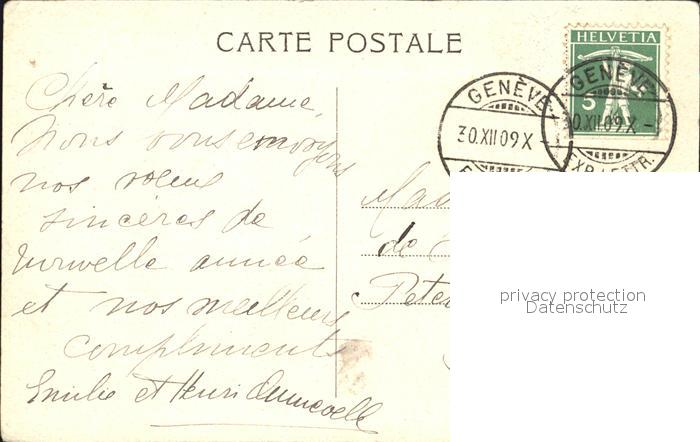 CARTE POSTALE
HELVETIA
5
GENÈVE
30.XII.09.X-
GENÈVE
30.XII.09.X-
EXP. LETTR.
Chère Madame,
Nous vous envoyons
nos vœux
sincères de
nouvelle année
et nos meilleurs
compliments
Emilie et Henri
de
privacy protection
Datenschutz